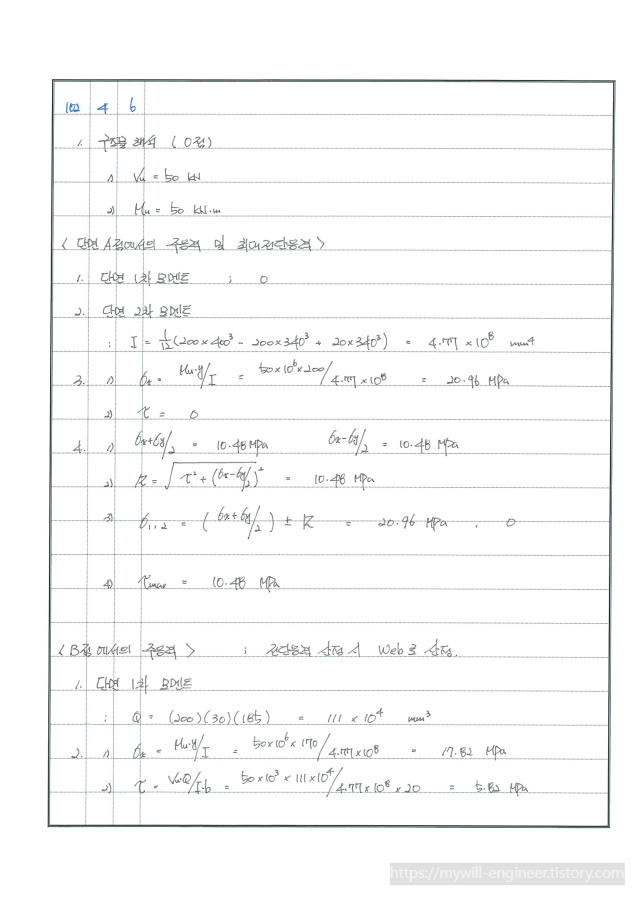 102 4 6
1. 구조물 해석 (0점)
1) Vu = 50 kN
2) Mu = 50 kN·m
< 단면 A점에서의 주응력 및 최대전단응력 >
1. 단면 1차 모멘트 ; 0
2. 단면 2차 모멘트
: I = 1/12(200×400³ - 200×340³ + 20×340³) = 4.77 ×10⁸ mm⁴
3. 1) σx = Mu·y/I = 50×10⁶×200/4.77×10⁸ = 20.96 MPa
2) τ = 0
4. 1) σx+σy/2 = 10.48MPa σx-σy/2 = 10.48 MPa
2) R = √(τ² + (σx-σy/2)²) = 10.48 MPa
3) σ1,2 = (σx+σy/2) ± R = 20.96 MPa , 0
4) τmax = 10.48 MPa
< B점에서의 주응력 > ; 전단응력 산정 시 Web로 산정.
1. 단면 1차 모멘트
: Q = (200)(30)(185) = 111 × 10⁴ mm³
2. 1) σx = Mu·y/I = 50×10⁶×170/4.77×10⁸ = 17.82 MPa
2) τ = Vu·Q/I·b = 50×10³×111×10⁴/4.77×10⁸×20 = 5.82 MPa
https://mywill-engineer.tistory.com